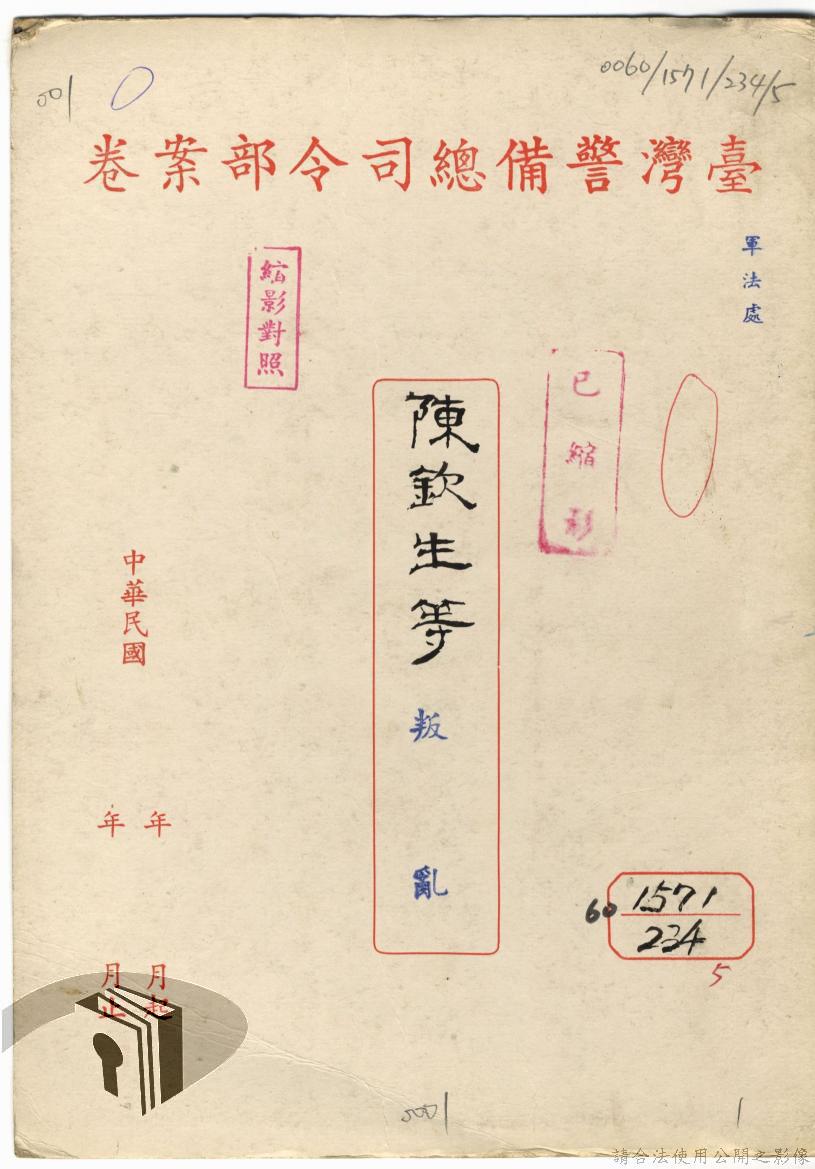 001
0060/1571/234/5
臺灣警備總司令部案卷
軍法處
縮影對照
已縮影
陳欽生等 叛亂
中華民國
年 月起
年 月止
60
1571
234
5
0001
1
請合法使用公開之影像